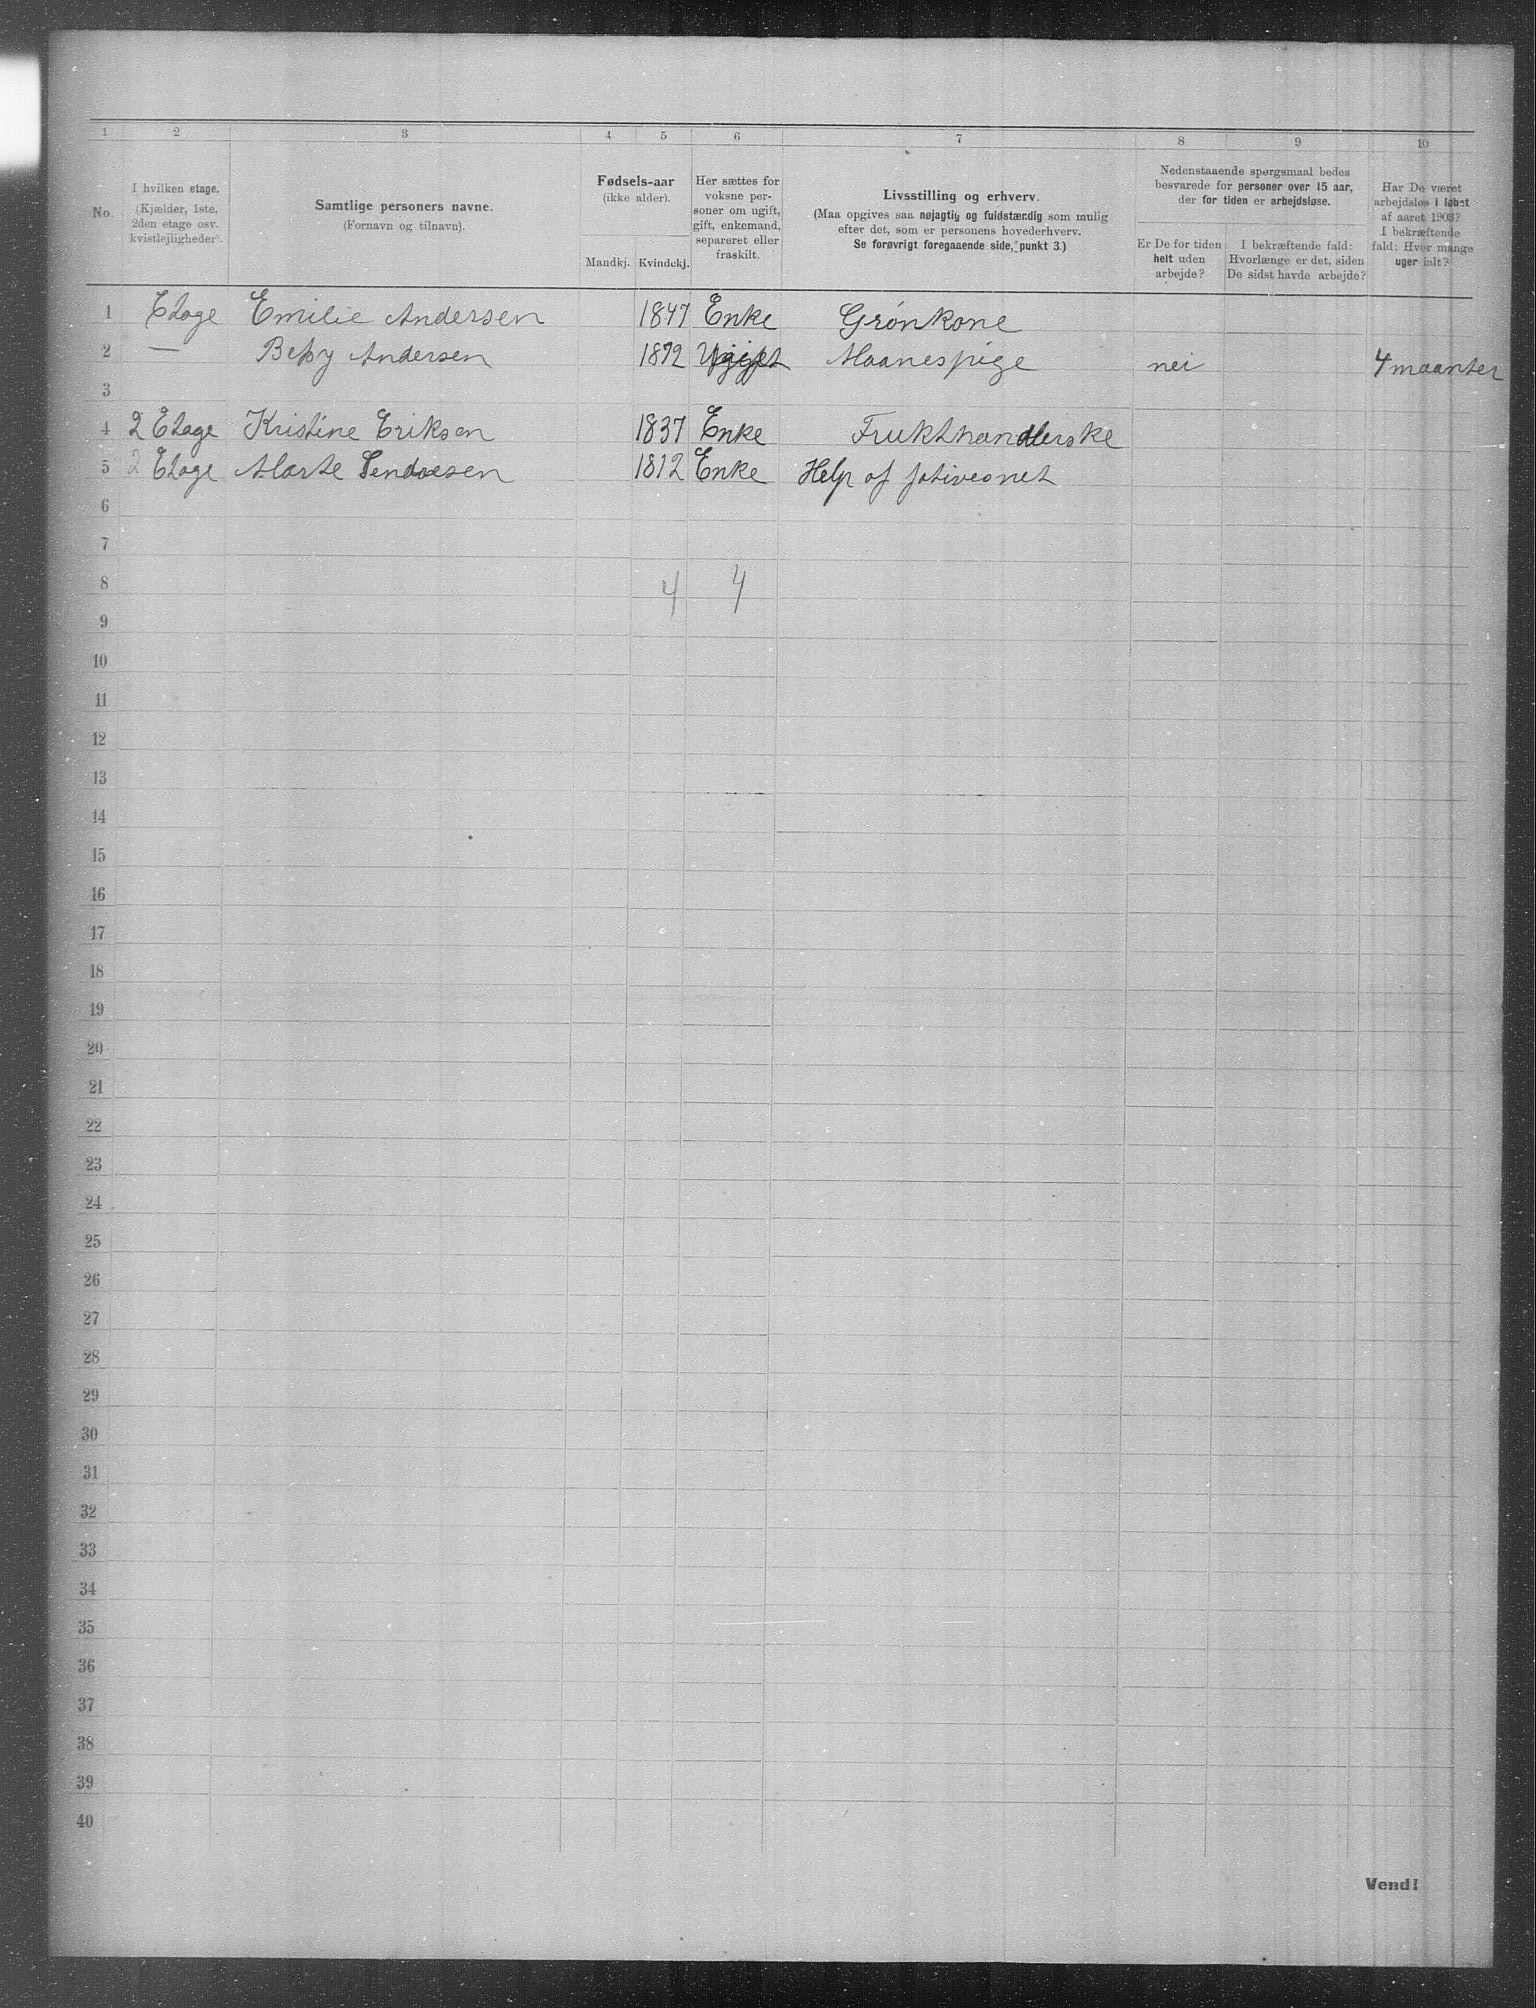 1 2 3 4 5 6 7 8 9 10
No.
I hvilken etage.
(Kjælder, 1ste, 2den etage osv. kvistlejligheder).
Samtlige personers navne.
(Fornavn og tilnavn).
Fødsels-aar
(ikke alder).
Mandkj. Kvindekj.
Her sættes for voksne personer om ugift, gift, enkemand, separeret eller fraskilt.
Livsstilling og erhverv.
(Maa opgives saa nøjagtig og fuldstændig som mulig
efter det, som er personens hovederhverv.
Se forøvrigt foregaaende side, punkt 3.)
Nedenstaaende spørgsmaal bedes
besvarede for personer over 15 aar,
der for tiden er arbejdsløse.
Er De for tiden
helt uden
arbejde?
I bekræftende fald:
Hvorlænge er det, siden
De sidst havde arbejde?
Har De været
arbejdsløs i løbet
af aaret 1903?
I bekræftende
fald: Hvor mange
uger ialt?
1 Etage Emilie Andersen 1847 Enke Grønkone
2 — Andersen 1872 Ugift Maanespige nei 4 maanter
3
4 2 Etage Kristine Eriksen 1837 Enke Frukthandlerske
5 2 Etage Marte 1812 Enke Help af
6
7
8 4 4
9
10
11
12
13
14
15
16
17
18
19
20
21
22
23
24
25
26
27
28
29
30
31
32
33
34
35
36
37
38
39
40
Vend!